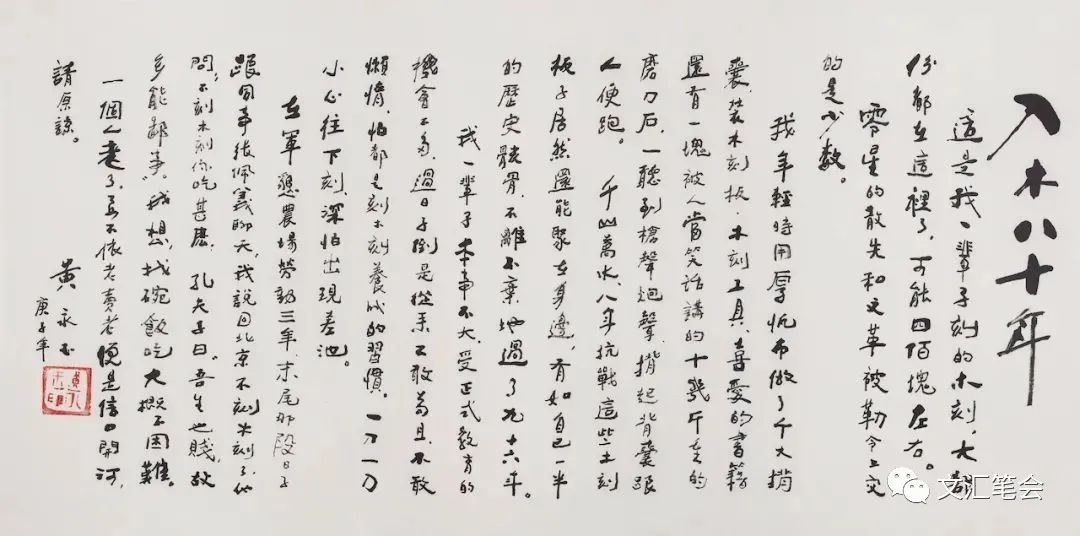 入木八十年
這是我一輩子刻的木刻，大部
份都在這裡了，可能四佰塊左右。
零星的散失和文革被勒令上交
的是少数。
我年輕時用厚帆布做了个大揹
囊装木刻板、木刻工具、喜愛的書籍
還有一塊被人當笑話講的十幾斤重的
磨刀石，一聽到槍聲炮聲，揹起背囊跟
人便跑。千山萬水，八年抗戰這些土刻
板子居然還能聚在身邊，有如自己一半
的歷史骸骨，不離不棄地過了九十六年。
我一輩子本事不大，受正式教育的
機會不多，過日子倒是從来不敢苟且，不敢
懶惰，怕都是刻木刻養成的習慣，一刀一刀
小心往下刻，深怕出現差池。
在軍墾農場勞動三年，末尾那段日子
跟同事張佩義聊天，我說回北京不刻木刻了，他
問：不刻木刻你吃甚麽，孔夫子曰：吾生也賤，故
多能鄙事，我想，找碗飯吃大概不困難。
一個人老了，若不依老賣老便是信口開河，
請原諒。
黄永玉
庚子年
文汇笔会